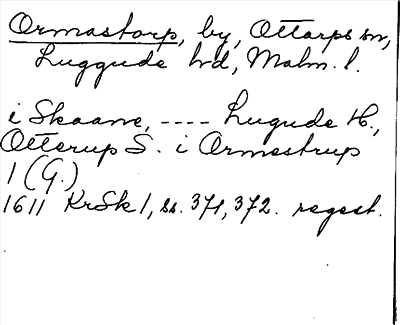 Ormastorp, by, Ottarps sn,
Luggude hd, Malm. l.
i Skaane, ---- Lugude H.,
Otterup S. i Ormestrup
1 (G.)
1611 KrSk 1, ss. 371, 372. regest.